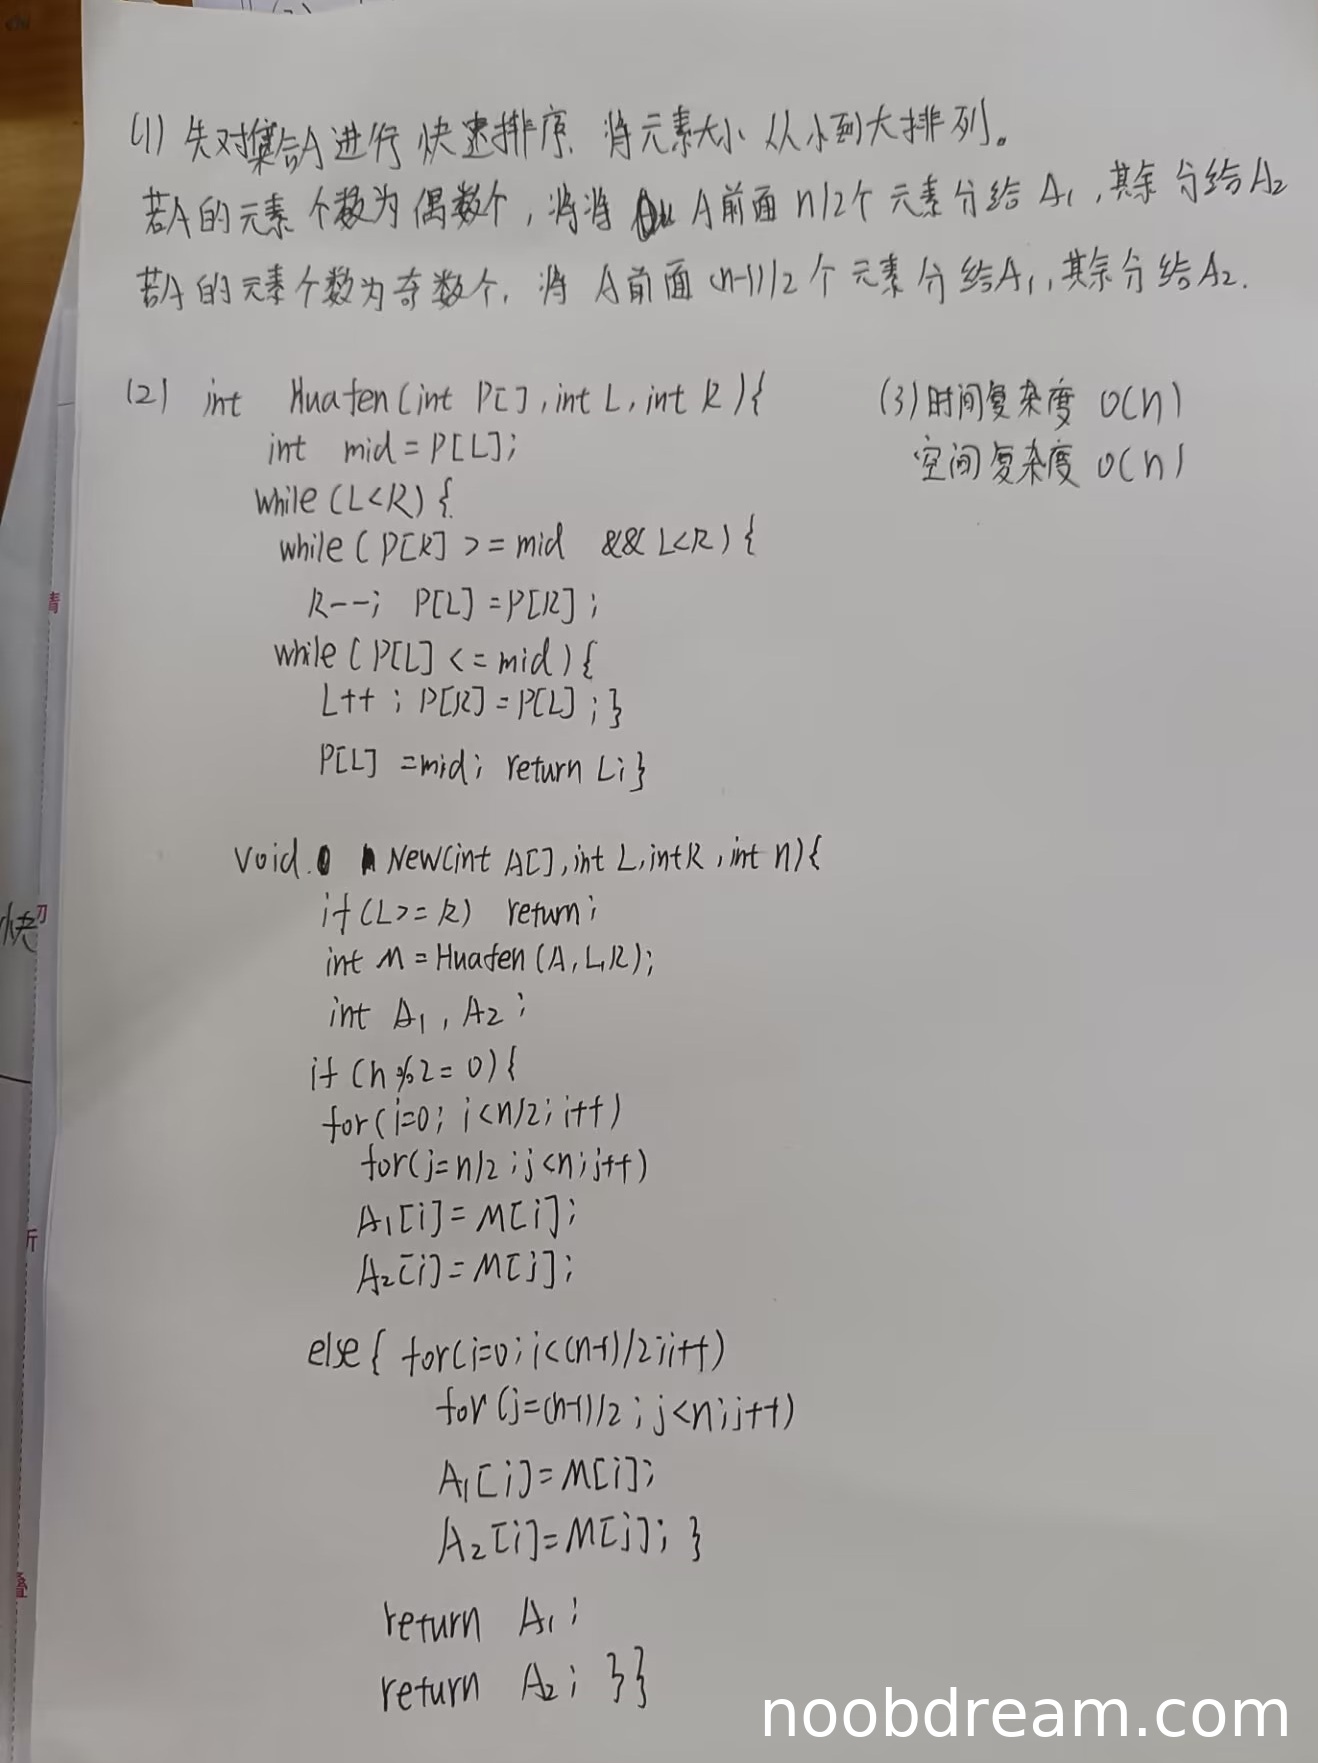 (1) 先对集合A进行快速排序, 将元素大小从小到大排列。
若A的元素个数为偶数个,将将 A前面 n/2个元素分给 A1,其余分给A2
若A的元素个数为奇数个,将 A前面 (n-1)/2个元素分给A1,其余分给A2.
(2) int Huafen(int P[],int L,int R){
int mid=P[L];
while(L<R){
while(P[R]>=mid &&L<R){
R--; P[L]=P[R];
while(P[L]<=mid){
L++; P[R]=P[L];}
P[L]=mid; return L;}
(3)时间复杂度 O(n)
空间复杂度 O(n)
void New(int A[],int L,int R,int n){
if(L>=R) return;
int M=Huafen(A,L,R);
int A1,A2;
if(n%2=0){
for(i=0; i<n/2; i++)
for(j=n/2; j<n; j++)
A1[i]=M[i];
A2[i]=M[j];
else{ for(i=0; i<(n-1)/2; i++)
for(j=(n-1)/2; j<n; j++)
A1[i]=M[i];
A2[i]=M[j]; }
return A1;
return A2; }}
快
刀
析
叠
noobdream.com